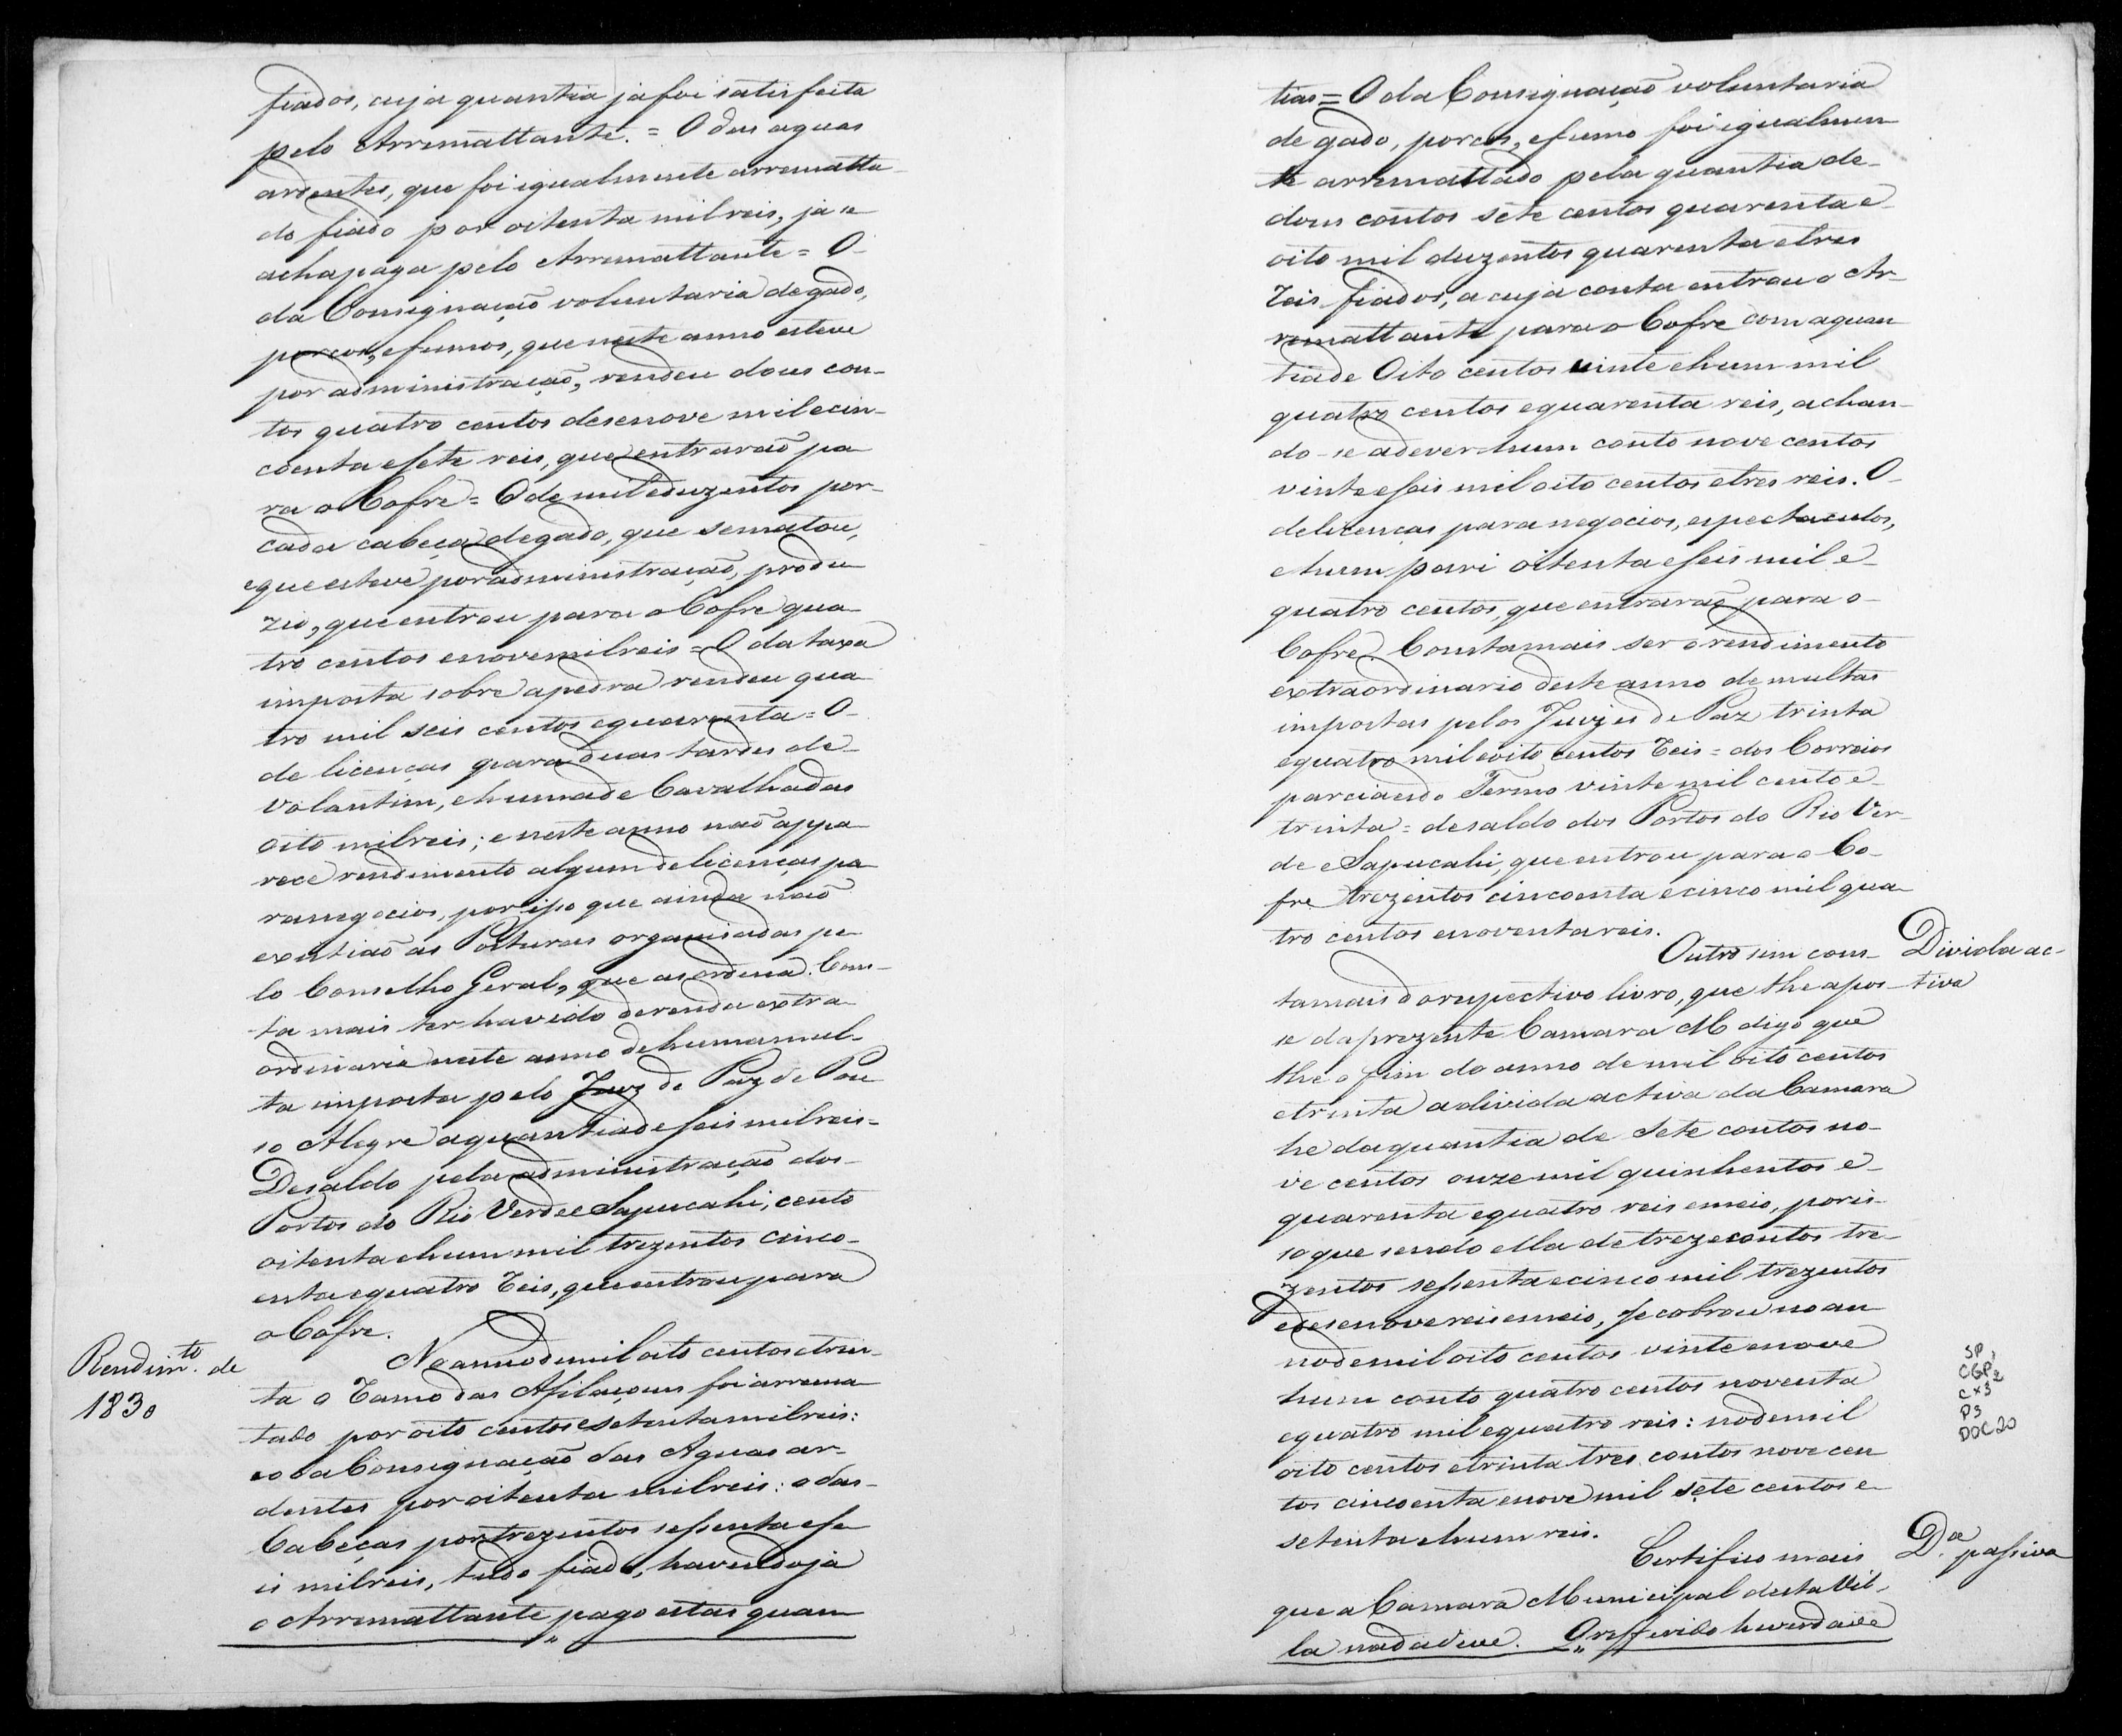 fiados, cuja quantia ja foi satisfeita
pelo Arremattante. = O das aguas
ardentes, que foi igualmente arrematta
do fiado por oitenta mil reis, ja se
acha paga pelo Arremattante = O
da Consignação voluntaria de gado,
porcos, e fumos, que neste anno esteve
por administração, rendeu dous con-
tos quatro centos desenove mil e cin-
coenta e sete reis, que entrarão pa
ra o Cofre = O de mil e duzentos por
cada cabeça de gado, que se matou,
e que esteve por administração, produ
zio, que entrou para o Cofre qua
tro centos e nove mil reis = O da taxa
imposta sobre a pedra rendeu qua
tro mil seis centos e quarenta = O
de licenças para duas tardes de
Volantim, e huma de Cavalhadas
oito mil reis; e neste anno não appa
rece rendimento algum de licenças pa
ra negocios, por isso que ainda não
existião as Posturas organisadas pe
lo Conselho Geral, que as ordena. Cons-
ta mais ter havido de renda extra
ordinaria neste anno de huma mul-
ta imposta pelo Juiz de Paz de Pou
so Alegre a quantia de seis mil reis -
De saldo pela administração dos
Portos do Rio Verde e Sapucahi, cento
oitenta e hum mil trezentos cinco-
enta e quatro Reis, que entrou para
o Cofre.
Rendim.to de
1830
No anno de mil oito centos e trin-
ta o Ramo das Afilaçoens foi arrema
tado por oito centos e setenta mil reis:
e o da Consignação das Aguas ar-
dentes por oitenta mil reis: o das
Cabeças por trezentos sessenta e se
is mil reis, tudo fiado, havendo ja
o Arremattante pago estas quan
tias = O da Consignação voluntaria
de gado, porcos, e fumo foi igualmen
te arremattado pela quantia de
dous contos sete centos quarenta e
oito mil duzentos quarenta e tres
Reis fiados, a cuja conta entrou o Ar-
remattante para o Cofre com a quan
tia de Oito centos vinte e hum mil
quatro centos e quarenta reis, achan-
do-se a dever hum conto nove centos
vinte e seis mil oito centos e tres reis. O
de licenças para negocios, espectaculos,
e hum pari oitenta e seis mil e
quatro centos, que entrarão para o
Cofre. Consta mais ser o rendimento
extraordinario deste anno de multas
impostas pelos Juizes de Paz trinta
e quatro mil e oito centos Reis = dos Correios
parciaes do Termo vinte mil cento e
trinta = de saldo dos Portos do Rio Ver-
de e Sapucahi, que entrou para o Co-
fre trezentos cincoenta e cinco mil qua
tro centos e noventa reis.
Divida ac-
tiva
Outro sim cons-
ta mais do respectivo livro, que the a pos-
se da prezente Camara M digo que
the o fim do anno de mil oito centos
e trinta a divida activa da Camara
he da quantia de sete contos no-
ve centos onze mil quinhentos e
quarenta e quatro reis e meio, por is-
so que sendo ella de treze contos tre-
zentos sessenta e cinco mil trezentos
e desenove reis e meio, se cobrou no an
no de mil oito centos vinte e nove
hum conto quatro centos noventa
e quatro mil e quatro reis: no de mil
oito centos e trinta tres contos nove cen
tos cincoenta e nove mil sete centos e
setenta e hum reis.
D.a passiva
Certifico mais
que a Camara Municipal desta Vil-
la nada deve. O refferido he verdade
SP
CGP 1/2
CX3
P3
DOC20